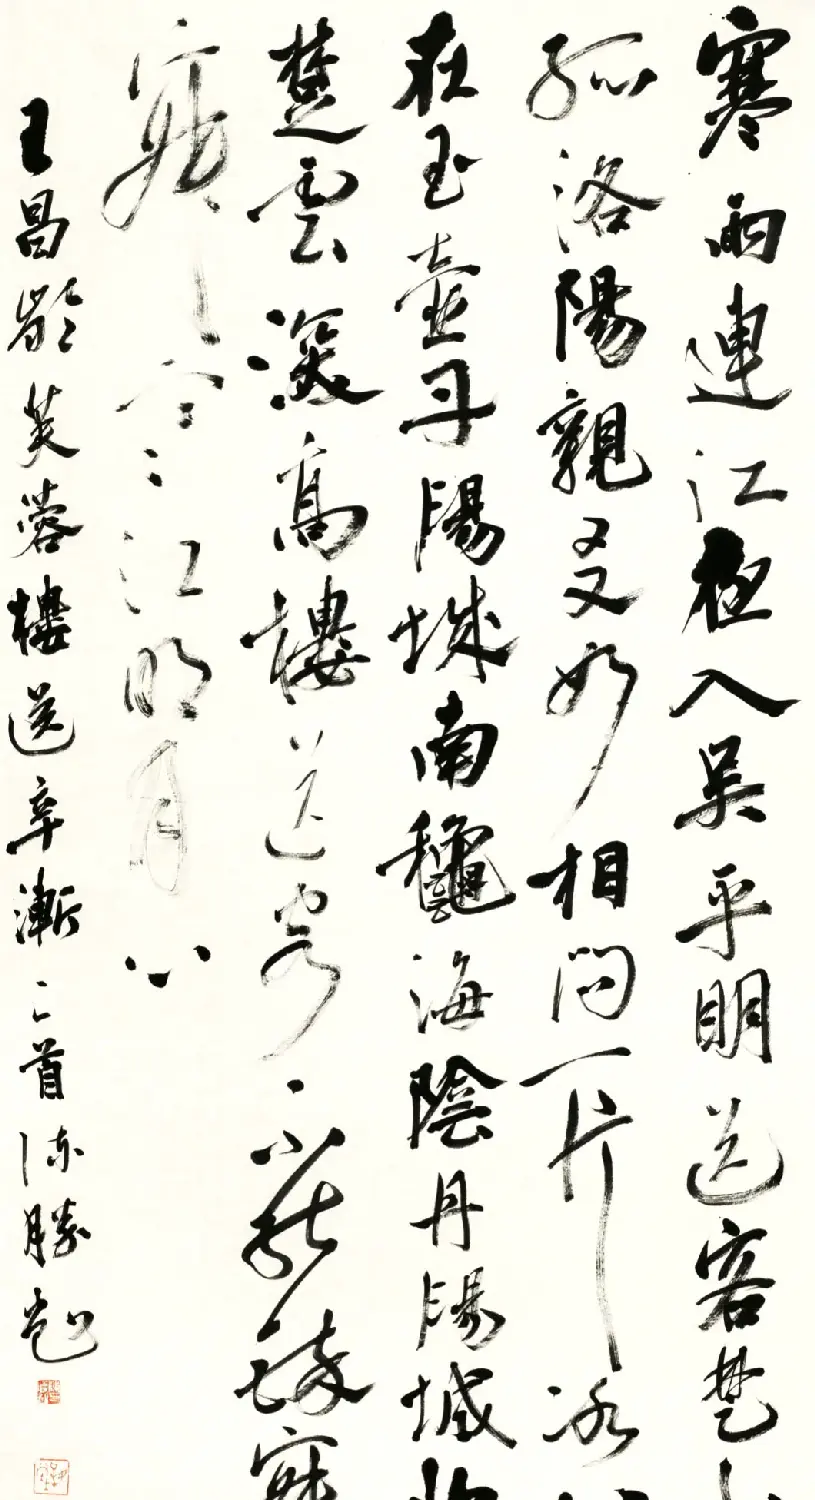 寒雨連江夜入吳平明送客楚
孤洛陽親友如相問一片冰
在玉壺丹陽城南龝海陰丹陽城
楚雲深高樓送客不能醉寂
寂寒江明月心
王昌齡芙蓉樓送辛漸二首陳勝